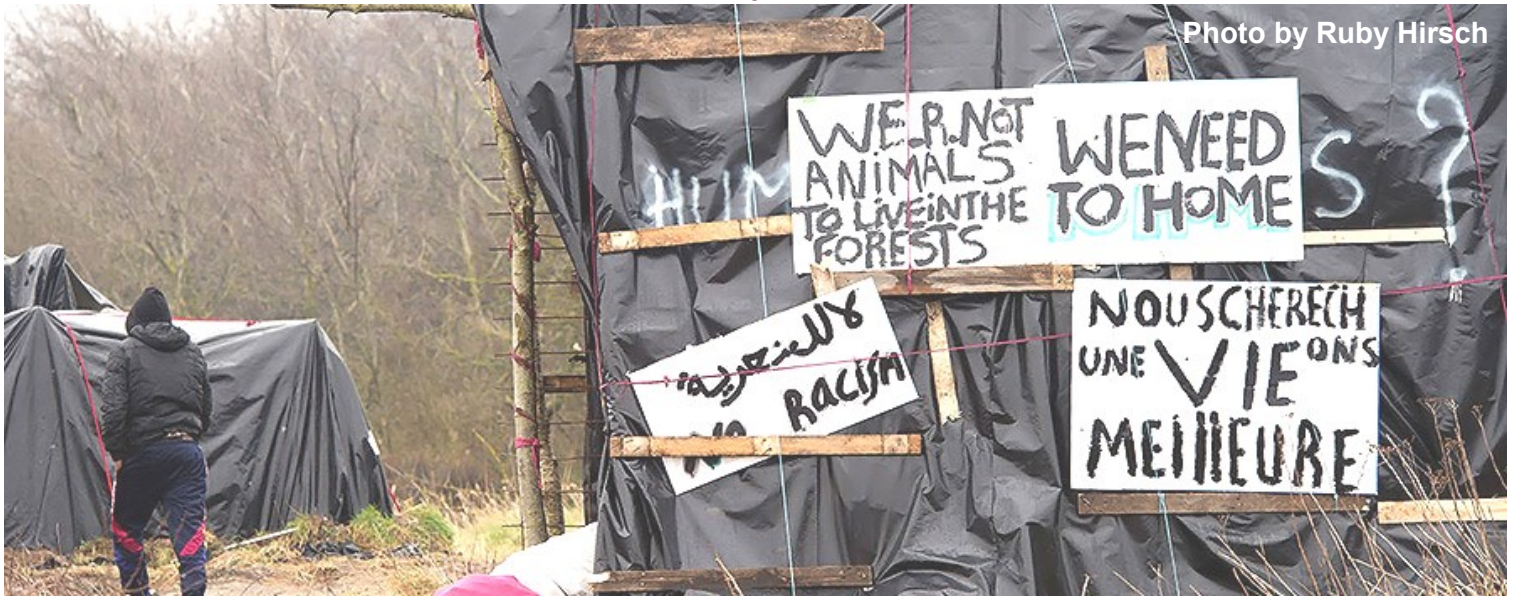 Photo by Ruby Hirsch
WE.R.NOT
ANIMALS
TO LIVEiNTHE
FORESTS
WENEED
TO HOME
HUM
S ?
لا للعنصرية
NO RACISM
NOUSCHERECH
UNE VIE ONS
MEillEURE